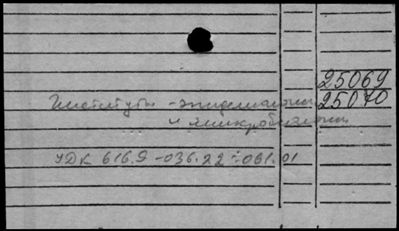 25069
Институты - эпидемиологии 25070
и микробиологии
УДК 616.9-036.22:061.01